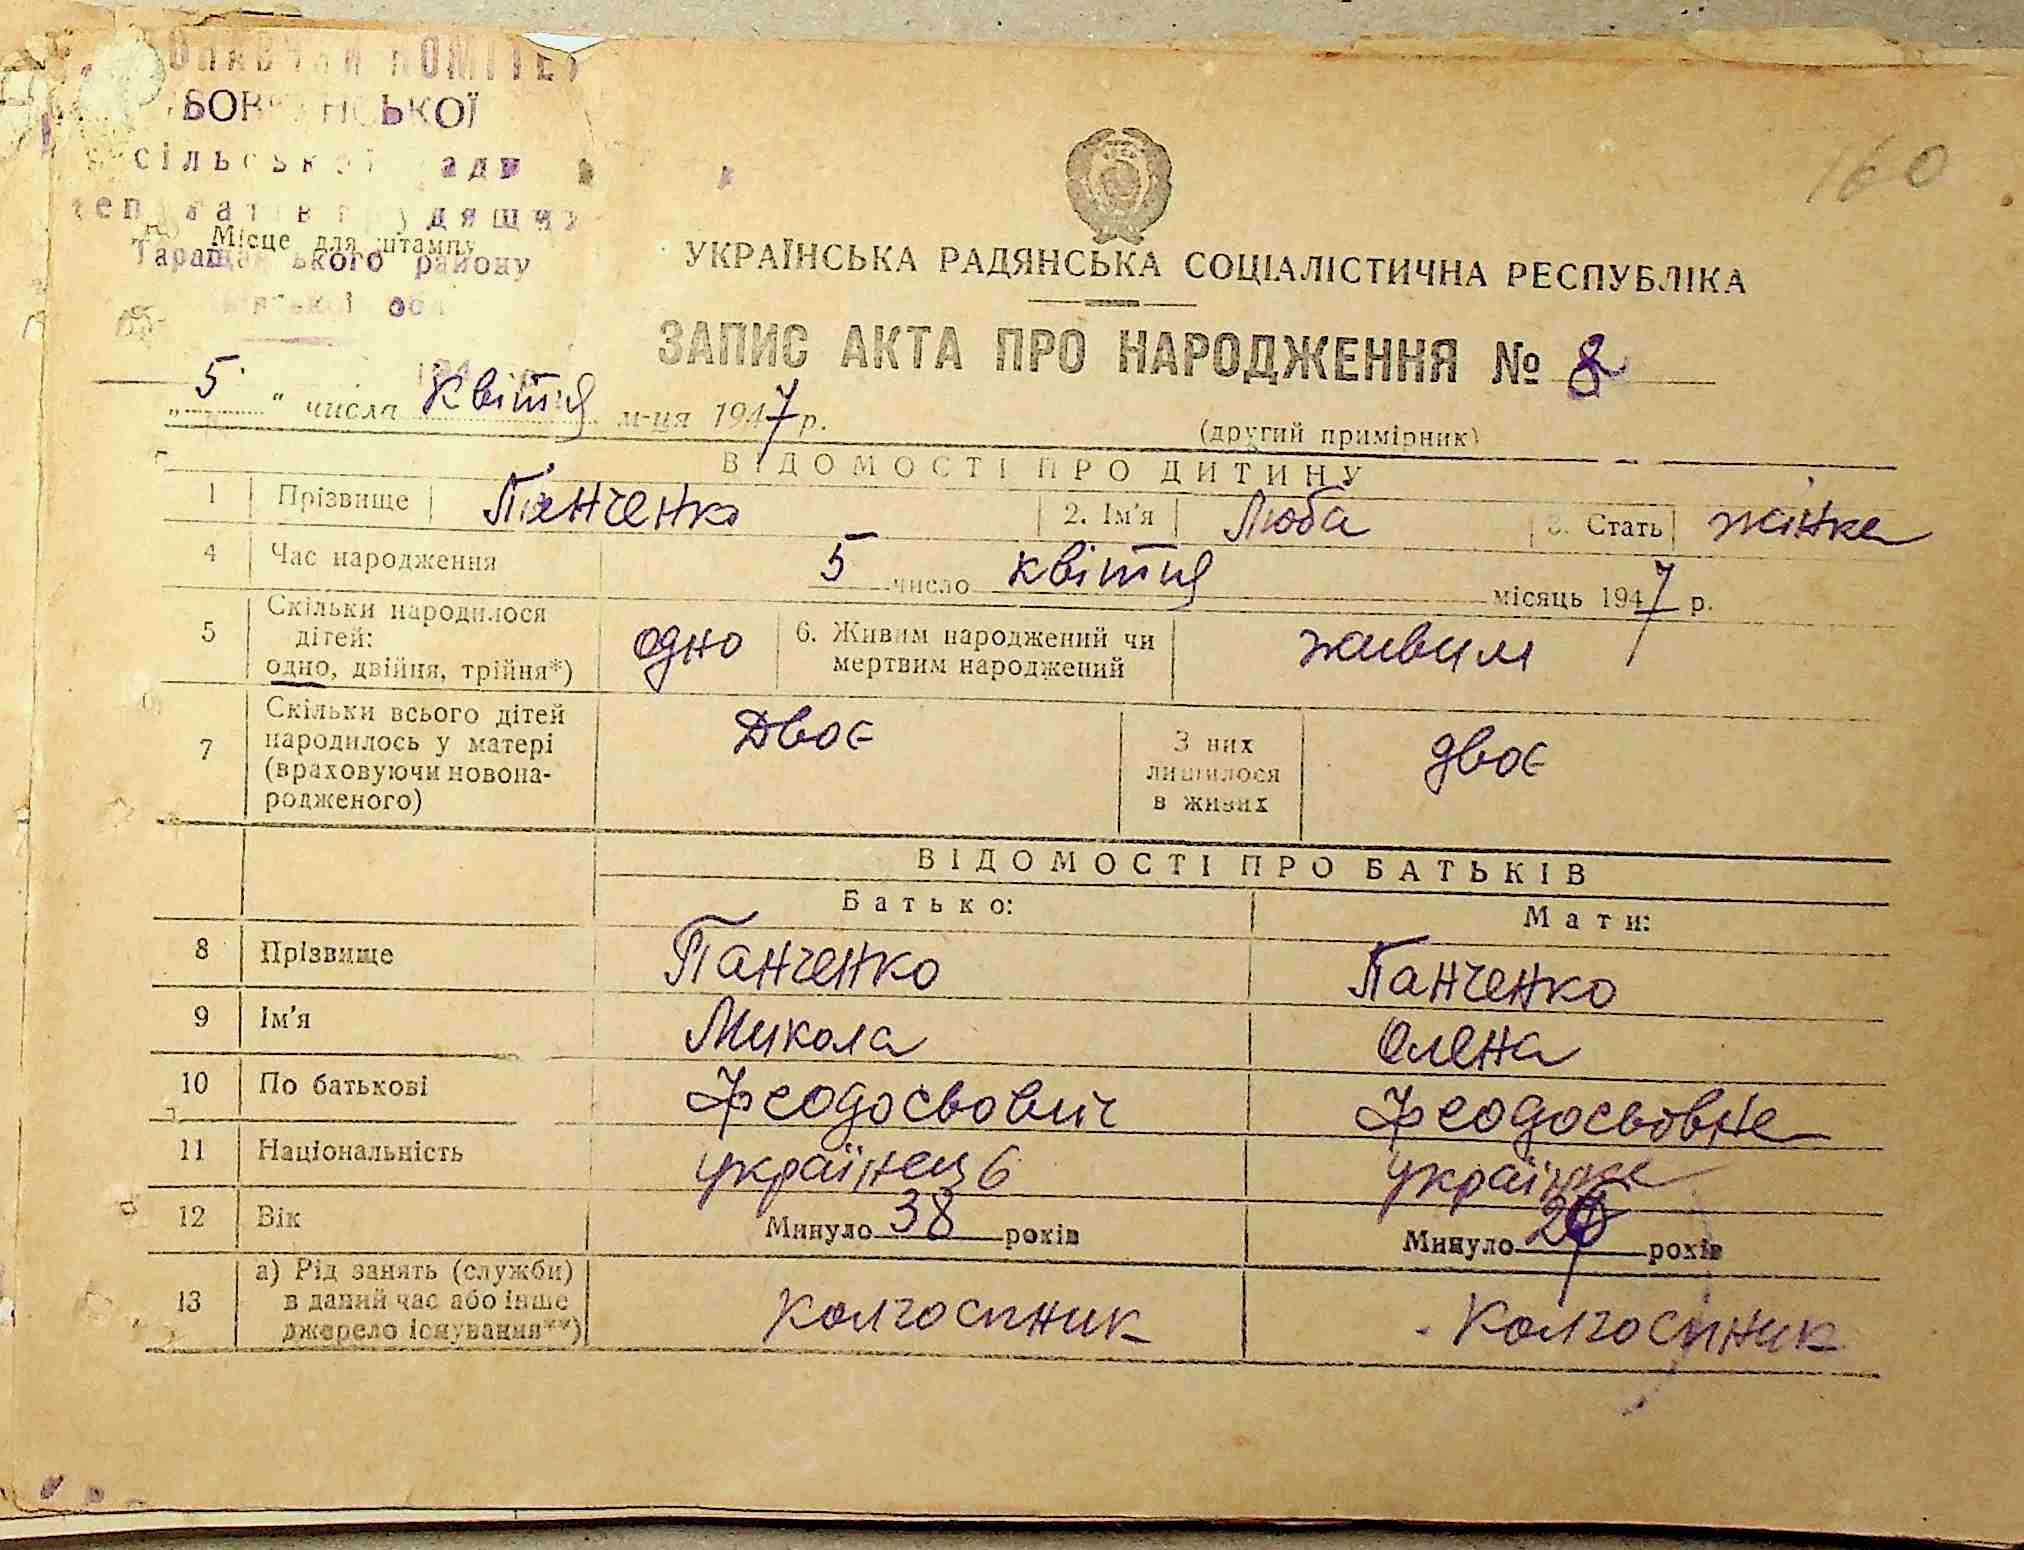 160
сільської ради
Місце для штампу
Таращанського району
УКРАЇНСЬКА РАДЯНСЬКА СОЦІАЛІСТИЧНА РЕСПУБЛІКА
ЗАПИС АКТА ПРО НАРОДЖЕННЯ № 8
„5“ числа квітня м-ця 1947 р.
(другий примірник)
ВІДОМОСТІ ПРО ДИТИНУ
1 Прізвище Панченко 2. Ім'я Люба 3. Стать жінка
4 Час народження 5 число квітня місяць 1947 р.
5 Скільки народилося дітей: одно, двійня, трійня*) одно 6. Живим народжений чи мертвим народжений живим
7 Скільки всього дітей народилось у матері (враховуючи новонародженого) Двоє З них лишилося в живих двоє
ВІДОМОСТІ ПРО БАТЬКІВ
Батько: Мати:
8 Прізвище Панченко Панченко
9 Ім'я Микола Олена
10 По батькові Феодосьович Феодосьовна
11 Національність українець українка
12 Вік Минуло 38 років Минуло років
13 а) Рід занять (служби) в даний час або інше джерело існування**) Колгоспник Колгоспник